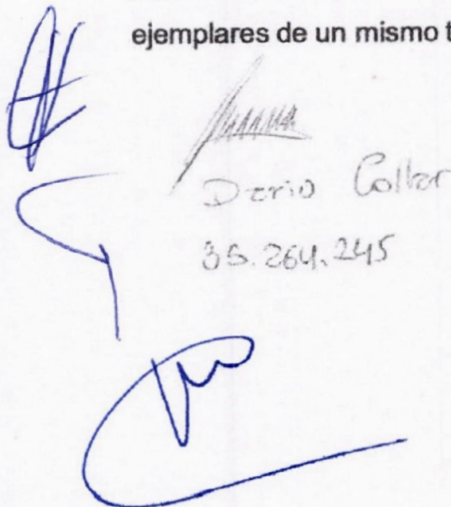 ejemplares de un mismo t
Dario Collar
35.264.245